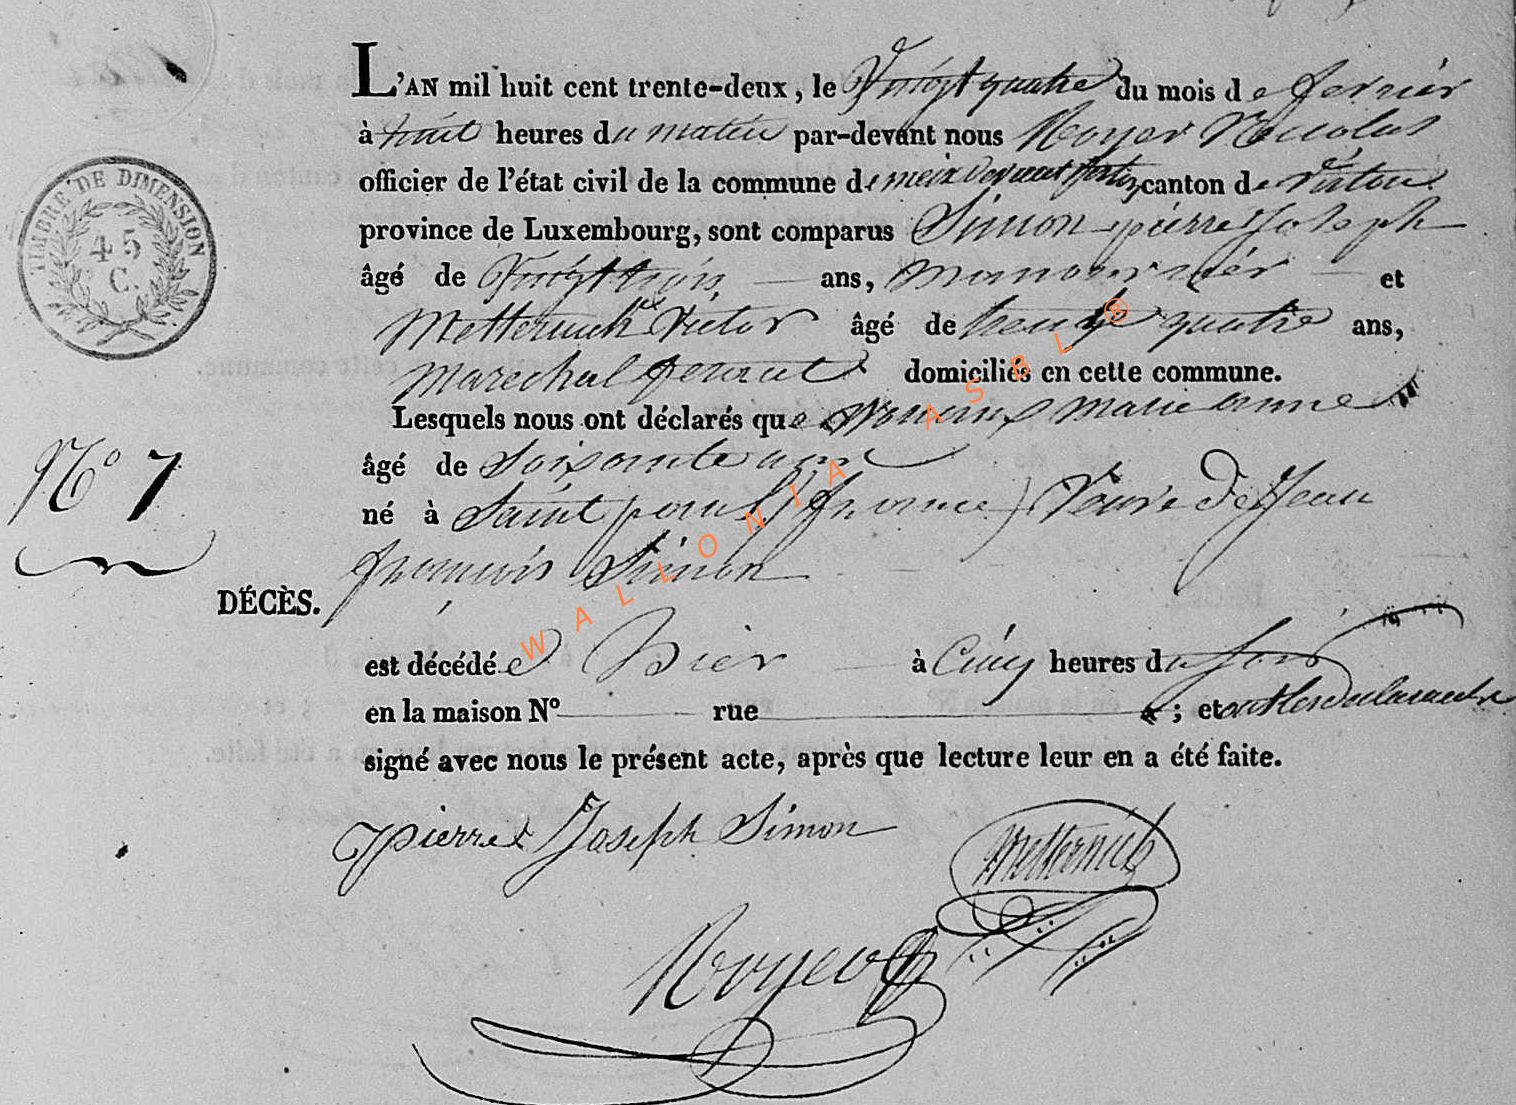 L'AN mil huit cent trente-deux, le Vingt quatre du mois de fevrier
à huit heures du matin par-devant nous Noyer Nicolas
officier de l'état civil de la commune de meix devant virton, canton de virton
province de Luxembourg, sont comparus Simon pierre Joseph
âgé de Vingt trois ans, manouvrier et
Metternich Victor âgé de trente quatre ans,
marechal ferrant domiciliés en cette commune.
Lesquels nous ont déclarés que marie anne
N° 7
âgé de soisante ans
né à Saint paul (france) Veuve de Jean
françois Simon
DÉCÈS.
est décédée hier à Cinq heures du soir
en la maison N° rue ; et
signé avec nous le présent acte, après que lecture leur en a été faite.
Pierre Joseph Simon
Metternich
TIMBRE DE DIMENSION
45
C.
WALLONIA ASBL ®